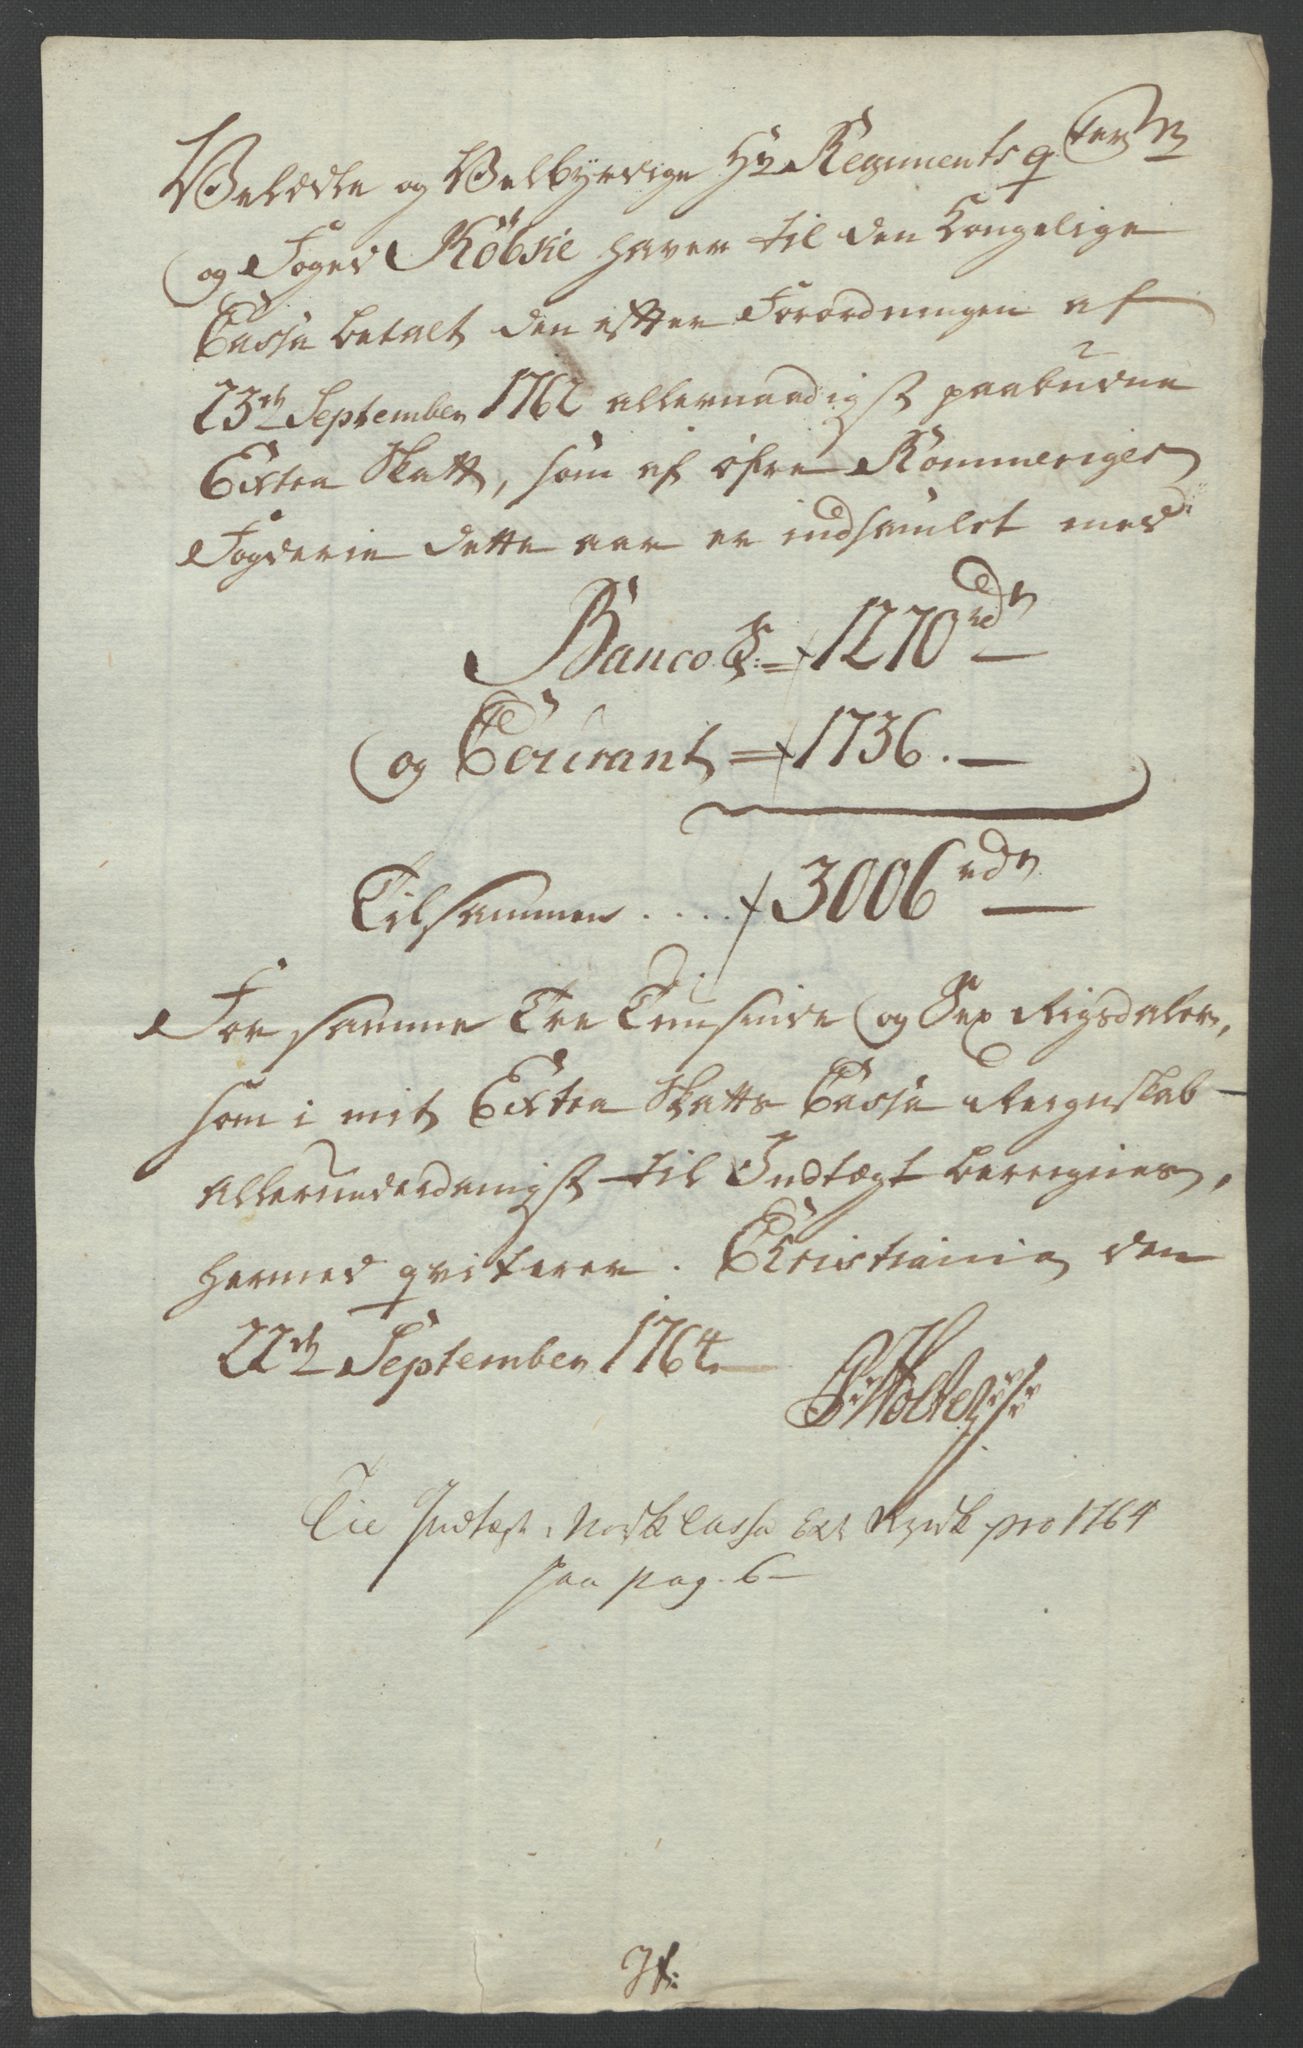 Velædle og Velbyrdige Hr Regiments qvarter Mr
og Foged Röbsie haver til den Kongelige
Cassa betalt den efter Forordningen af
23de September 1762 allernaadigst paabudne
Extra Skatt, som af öfre Rommeriges
Fogderie dette aar er indsamlet med
Banco S: = 1270 rdr —
og Courant = 1736. —
Tilsammen .... 3006 rdr —
For samme Tre Tusinde og Sex Rigsdaler,
som i mit Extra Skatts Cassa Reignskab
allerunderdanigst til Indtægt bereignes,
hermed qviterer. Christiania den
22de September 1764.
P Holter
Til Indtægt i Norsk Cassa Ext pro 1764
paa pag. 6 —